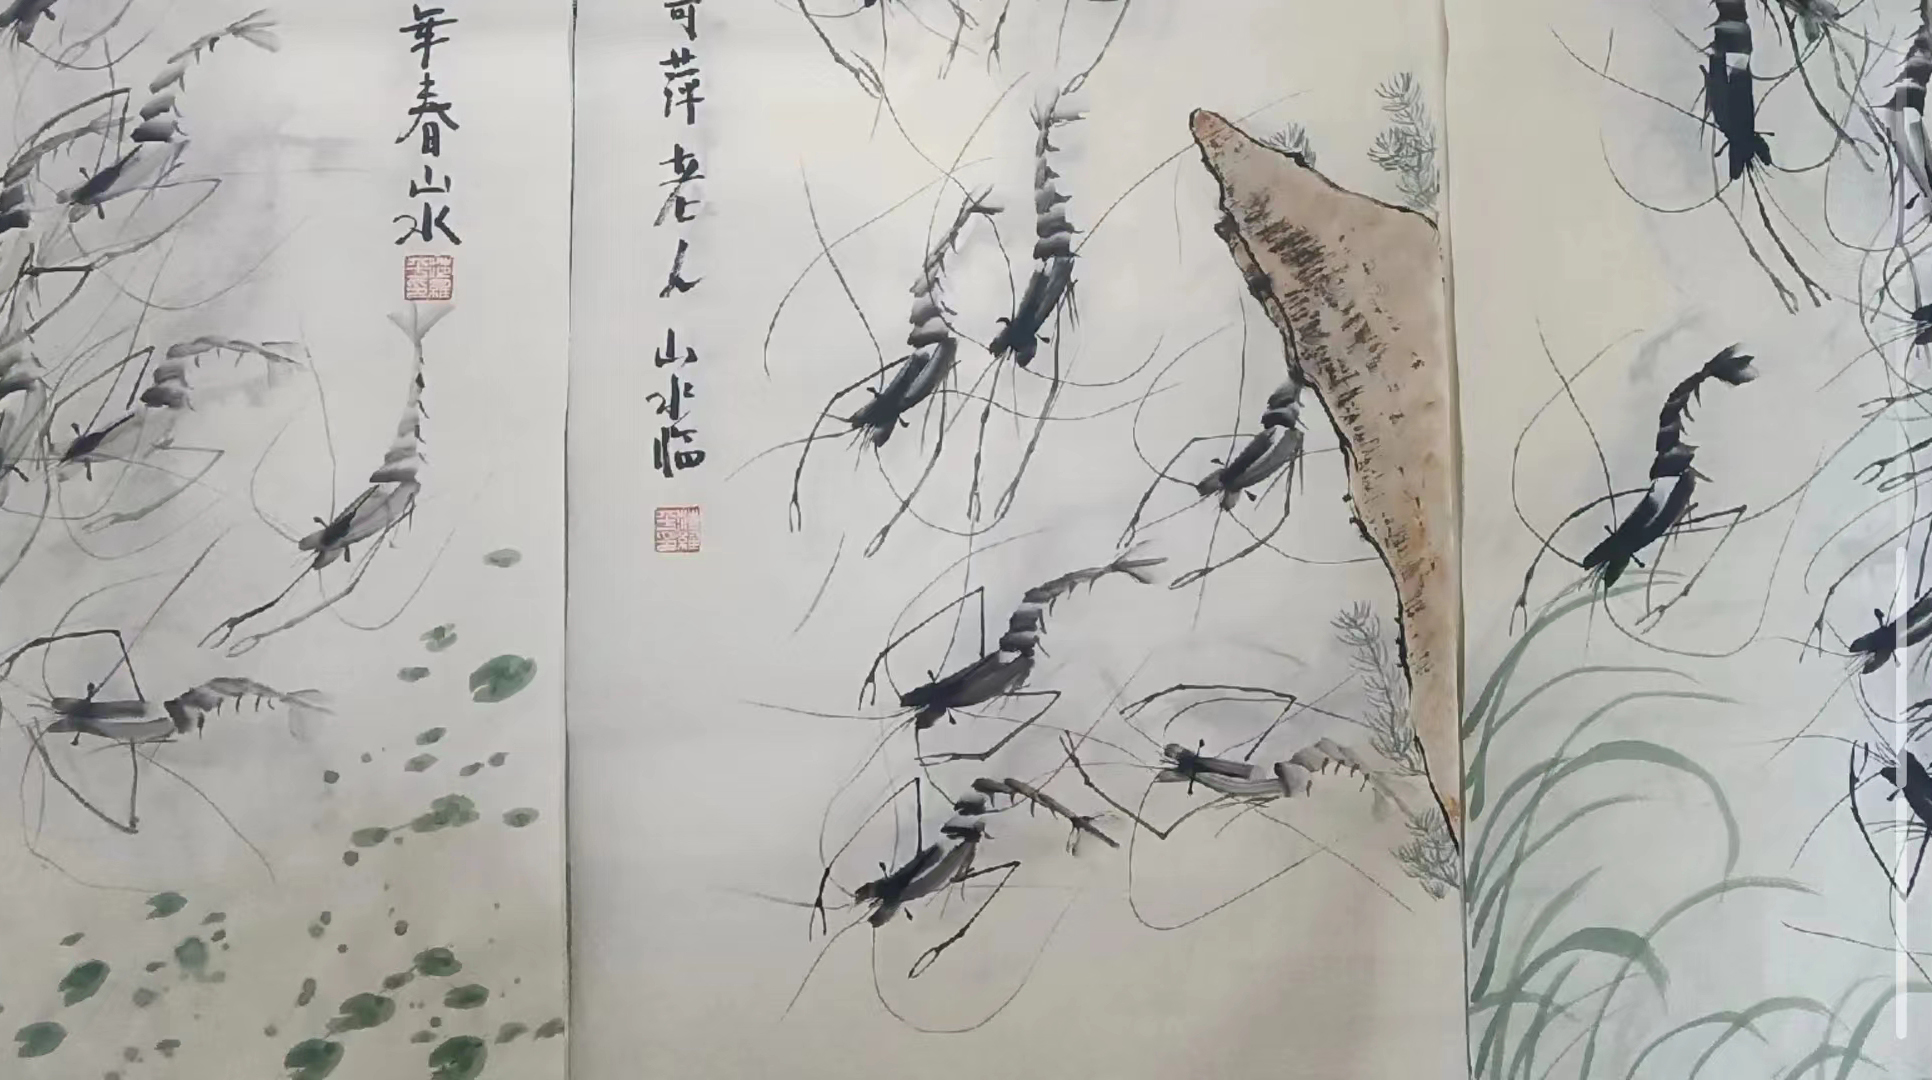 年春山水
可萍老人山水临